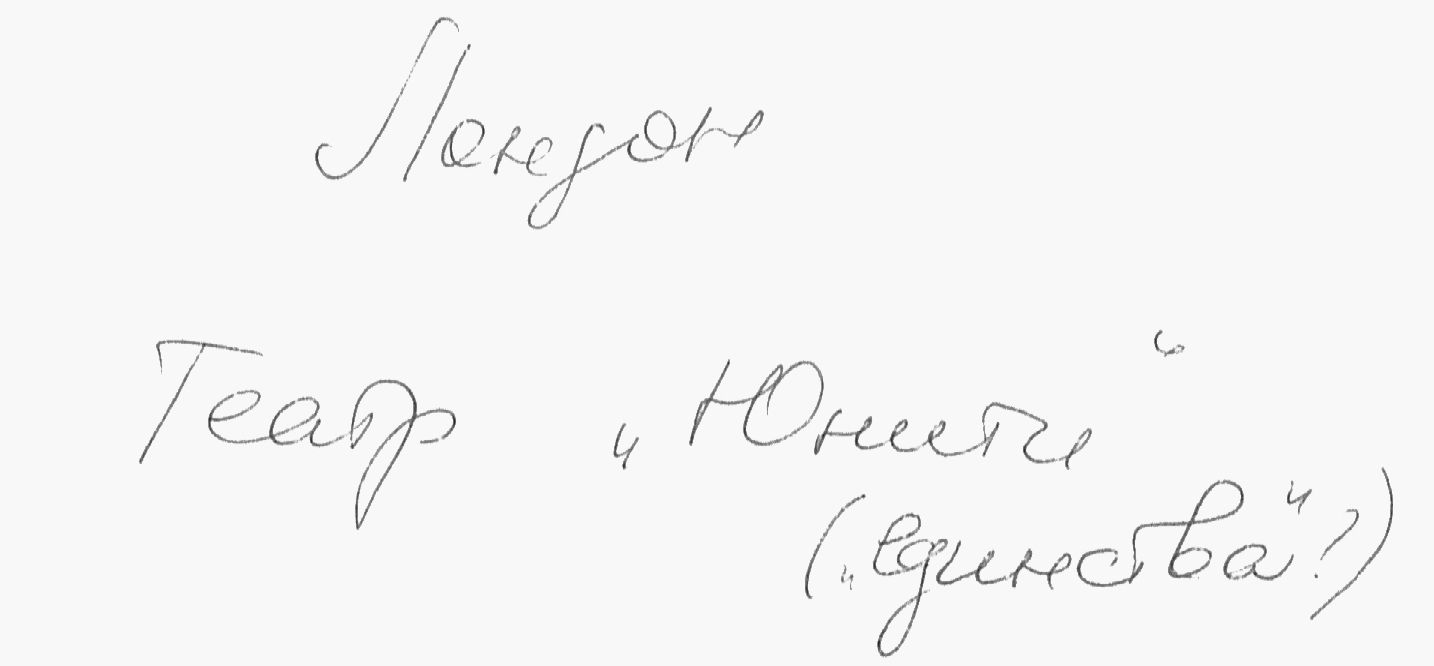 Лондон
Театр „Юнити“
(„единства“?)